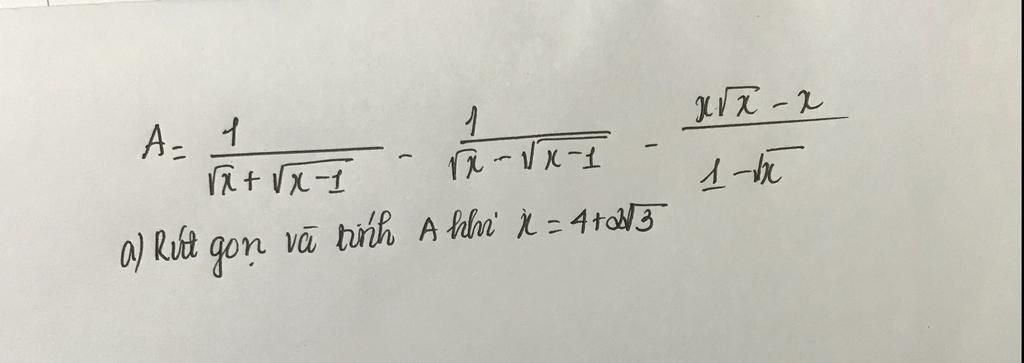 A = \frac{1}{\sqrt{x} + \sqrt{x-1}} - \frac{1}{\sqrt{x} - \sqrt{x-1}} - \frac{x\sqrt{x} - x}{1 - \sqrt{x}}
a) Rút gọn và tính A khi x = 4+2\sqrt{3}